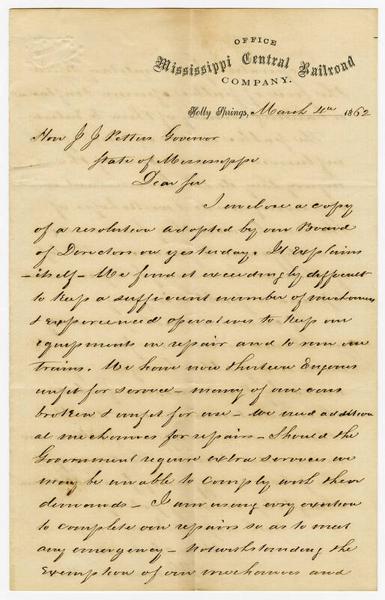 OFFICE
Mississippi Central Railroad
COMPANY.
Holly Springs, March 4th 1862
Hon J J Pettus Governor
State of Mississippi
Dear Sir
I enclose a copy
of a resolution adopted by our Board
of Directors on yesterday. It Explains
itself - We find it exceedingly difficult
to keep a sufficient number of mechanics
& Experienced operatives to keep our
equipments in repair and to run our
trains. We have now thirteen Engines
unfit for service - many of our cars
broken & unfit for use - We need addition
al mechanics for repairs - Should the
Government require extra services we
may be unable to comply with their
demands - I am using every exertion
to complete our repairs so as to meet
any emergency - Notwithstanding the
Exemption of our mechanics and